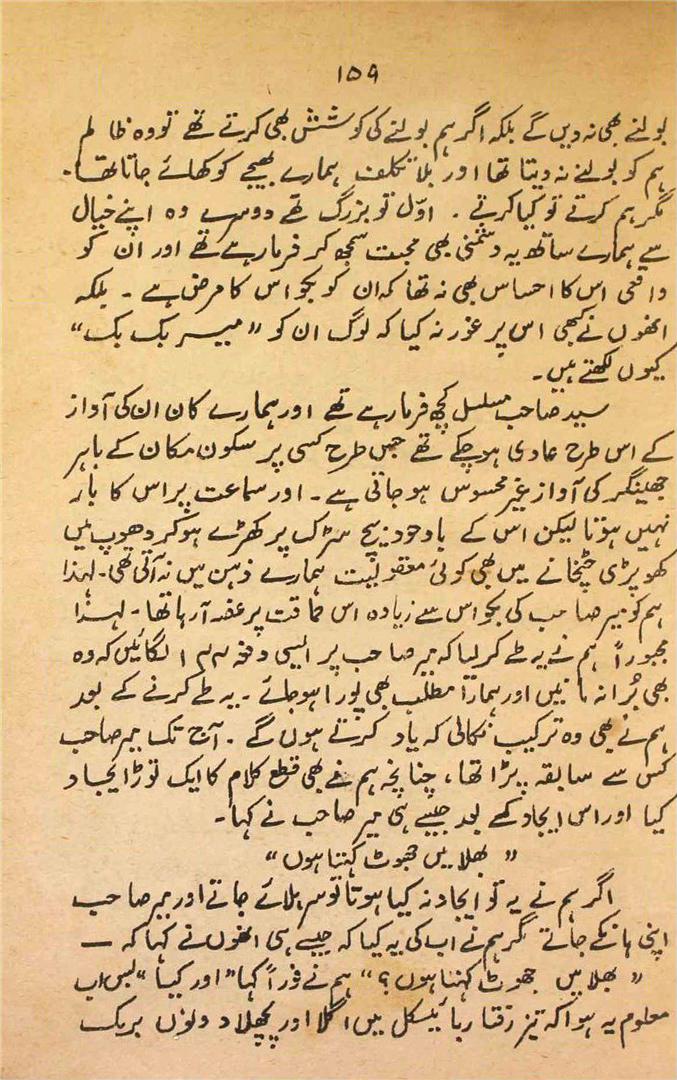 ۱۵۹
بولنے بھی نہ دیں گے بلکہ اگر ہم بولنے کی کوشش بھی کرتے تھے تو وہ ظالم
ہم کو بولنے نہ دیتا تھا اور بلا تکلف ہمارے بھیجے کو کھائے جاتا تھا۔
مگر ہم کرتے تو کیا کرتے۔ اوّل تو بزرگ تھے دوسرے وہ اپنے خیال
سے ہمارے ساتھ یہ دشمنی بھی محبت سمجھ کر فرما رہے تھے اور ان کو
واقعی اس کا احساس بھی نہ تھا کہ ان کو بکواس کا مرض ہے۔ بلکہ
انھوں نے کبھی اس پر غور نہ کیا کہ لوگ ان کو "میر بک بک"
کیوں لکھتے ہیں۔
سید صاحب مسلسل کچھ فرما رہے تھے اور ہمارے کان ان کی آواز
کے اس طرح عادی ہو چکے تھے جس طرح کسی پر سکون مکان کے باہر
جھینگر کی آواز غیر محسوس ہو جاتی ہے۔ اور سماعت پر اس کا بار
نہیں ہوتا لیکن اس کے باوجود بیچ سڑک پر کھڑے ہو کر دھوپ میں
کھوپڑی چٹخانے میں بھی کوئی معقولیت ہمارے ذہن میں نہ آتی تھی۔ لہذا
ہم کو میر صاحب کی بکواس سے زیادہ اس حماقت پر غصہ آ رہا تھا۔ لہذا
مجبوراً ہم نے یہ طے کر لیا کہ میر صاحب پر ایسی دفعہ ۱۴۴ لگائیں کہ وہ
بھی بُرا نہ مانیں اور ہمارا مطلب بھی پورا ہو جائے۔ یہ طے کرنے کے بعد
ہم نے بھی وہ ترکیب نکالی کہ یاد کرتے ہوں گے۔ آج تک میر صاحب
کس سے سابقہ پڑا تھا، چنانچہ ہم نے بھی قطع کلام کا ایک توڑ ایجاد
کیا اور اس ایجاد کے بعد جیسے ہی میر صاحب نے کہا۔
"بھلا میں جھوٹ کہتا ہوں"
اگر ہم نے یہ تو ایجاد نہ کیا ہوتا تو سر ہلائے جاتے اور میر صاحب
اپنی ہانکے جاتے مگر ہم نے اب کی یہ کیا کہ جیسے ہی انھوں نے کہا کہ —
"بھلا میں جھوٹ کہتا ہوں؟" ہم نے فوراً کہا "اور کیا" بس اب
معلوم یہ ہوا کہ تیز رفتار بائیسکل میں اگلا اور پچھلا دونوں بریک